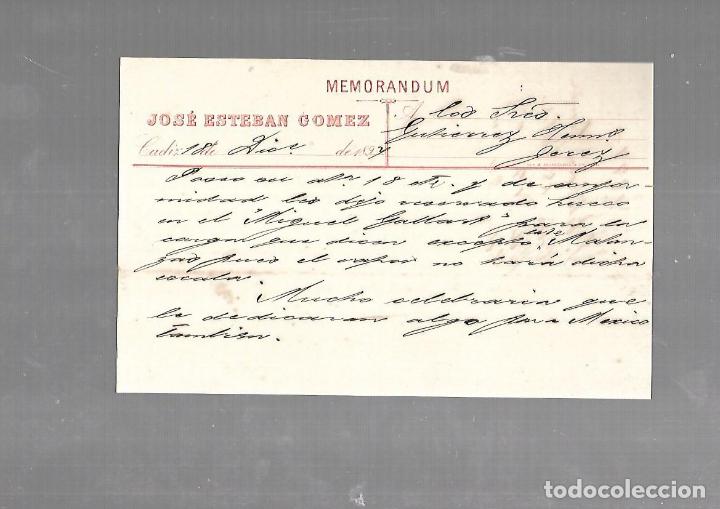 MEMORANDUM
JOSÉ ESTEBAN GOMEZ
Cadiz 18 de Dice de 1897
A los Sres.
Gutierrez Hermos
Jerez
Poseo su atta. 18 ctte. y de confor-
midad les dejo reservado hueco
en el "Miguel Gallart" para la
carga que dicen excepto Matan-
zas pues el vapor no hará dicha
escala.
Mucho celebraria que
le dedicaran algo para Mexico
tambien.
todocoleccion
todocoleccion.net